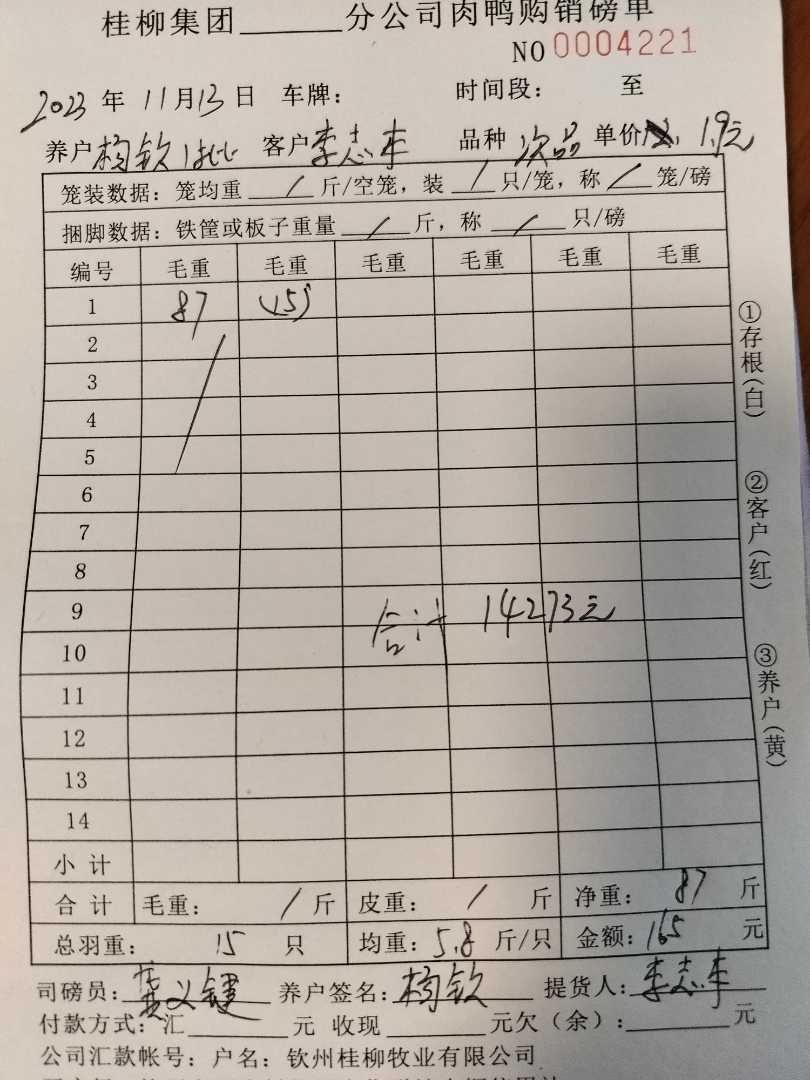 桂柳集团______分公司肉鸭购销磅单
NO 0004221
2023年11月13日 车牌: 时间段: 至
养户 杨钦 客户 李志丰 品种 次品 单价 1.9元
笼装数据: 笼均重 / 斤/空笼, 装 / 只/笼, 称 / 笼/磅
捆脚数据: 铁筐或板子重量 / 斤, 称 / 只/磅
编号 毛重 毛重 毛重 毛重 毛重 毛重
1 87 (15)
2
3
4
5
6
7
8
9
合计 14273元
10
11
12
13
14
小计
合计 毛重: / 斤 皮重: / 斤 净重: 87 斤
总羽重: 15 只 均重: 5.8 斤/只 金额: 165 元
司磅员: 义键 养户签名: 杨钦 提货人: 李志丰
付款方式: 汇______元 收现______元欠(余):______元
公司汇款帐号: 户名: 钦州桂柳牧业有限公司
①存根(白)
②客户(红)
③养户(黄)